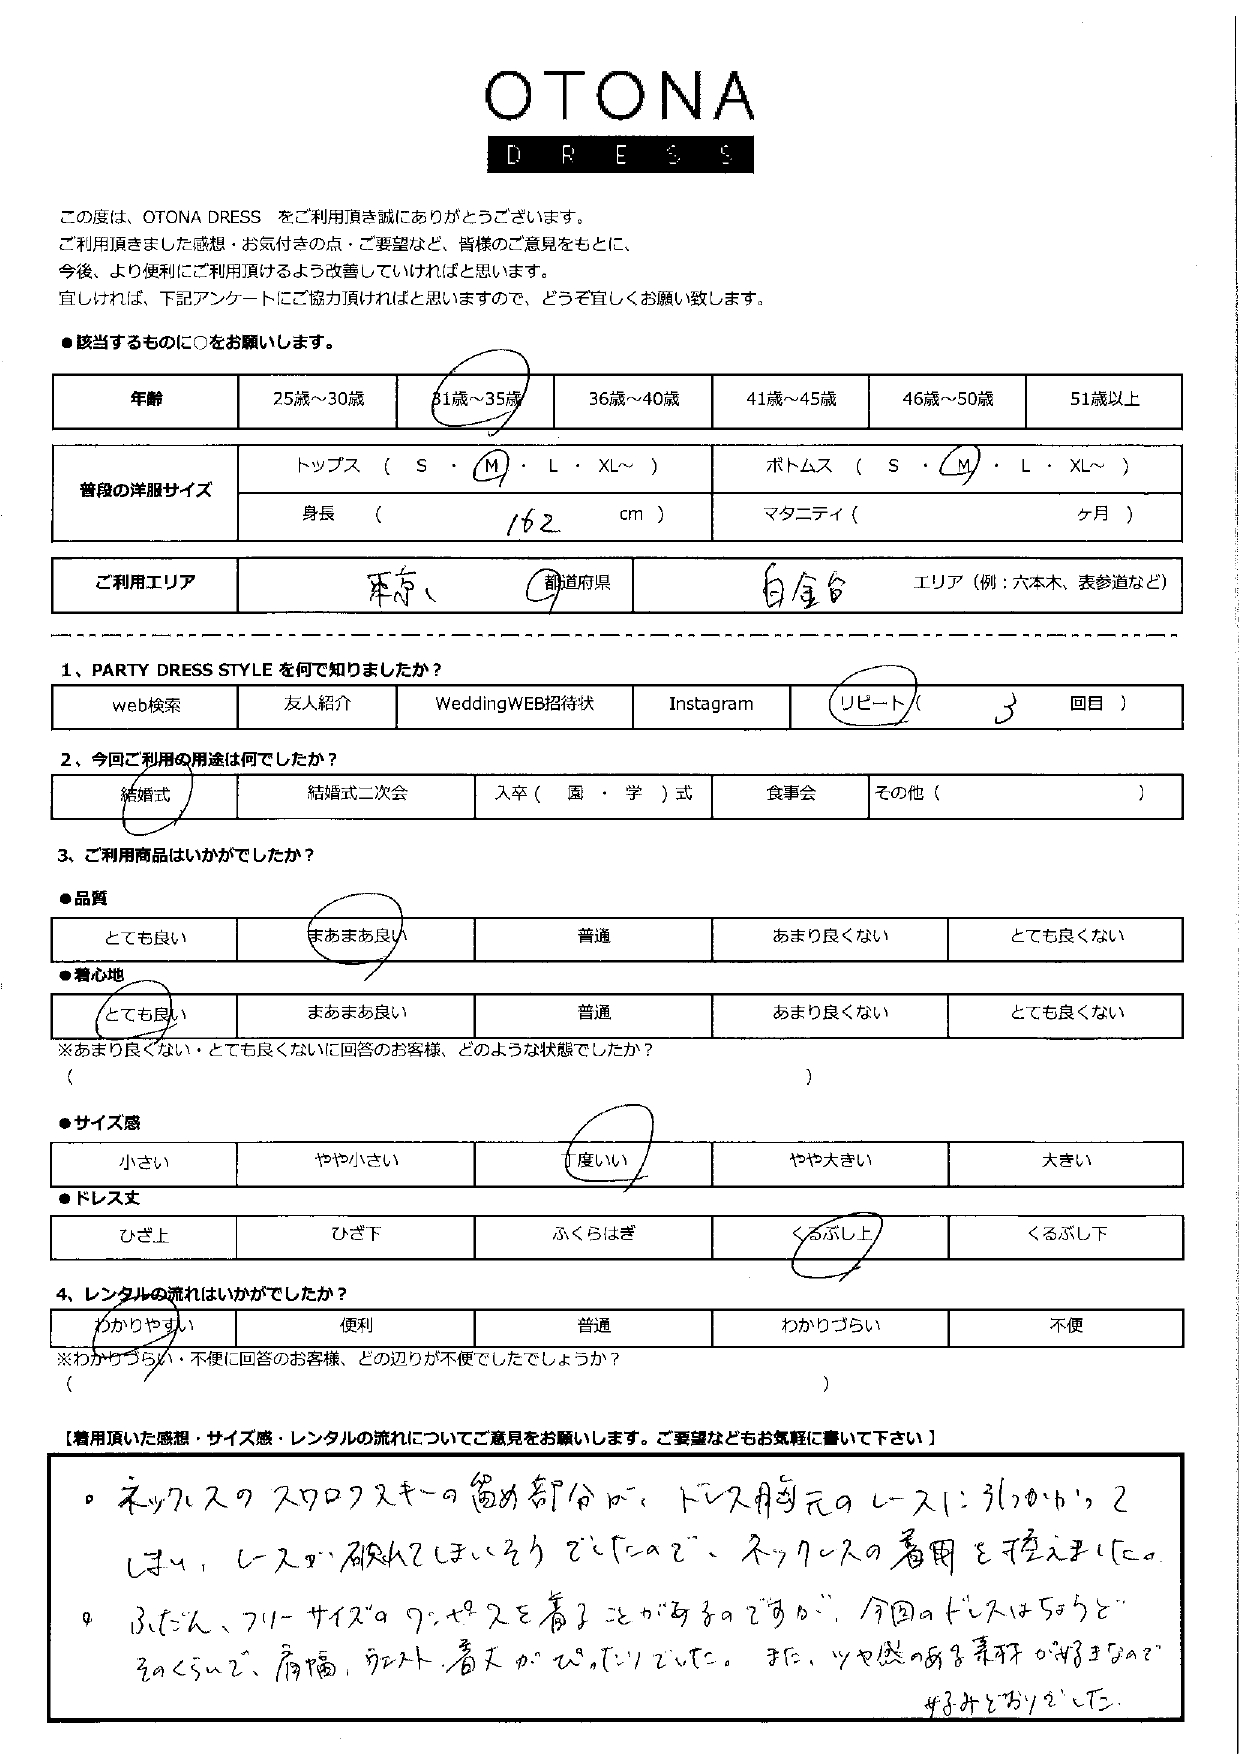 OTONA
DRESS
この度は、OTONA DRESS をご利用頂き誠にありがとうございます。
ご利用頂きました感想・お気付きの点・ご要望など、皆様のご意見をもとに、
今後、より便利にご利用頂けるよう改善していければと思います。
宜しければ、下記アンケートにご協力頂ければと思いますので、どうぞ宜しくお願い致します。
●該当するものに○をお願いします。
年齢 25歳～30歳 31歳～35歳 36歳～40歳 41歳～45歳 46歳～50歳 51歳以上
普段の洋服サイズ トップス ( S ・ M ・ L ・ XL～ ) ボトムス ( S ・ M ・ L ・ XL～ )
身長 ( 162 cm ) マタニティ ( ヶ月 )
ご利用エリア 東京 都道府県 白金台 エリア（例：六本木、表参道など）
1、PARTY DRESS STYLE を何で知りましたか？
web検索 友人紹介 WeddingWEB招待状 Instagram リピート ( 3 回目 )
2、今回ご利用の用途は何でしたか？
結婚式 結婚式二次会 入卒 ( 園 ・ 学 ) 式 食事会 その他 ( )
3、ご利用商品はいかがでしたか？
●品質
とても良い まあまあ良い 普通 あまり良くない とても良くない
●着心地
とても良い まあまあ良い 普通 あまり良くない とても良くない
※あまり良くない・とても良くないに回答のお客様、どのような状態でしたか？
( )
●サイズ感
小さい やや小さい 丁度いい やや大きい 大きい
●ドレス丈
ひざ上 ひざ下 ふくらはぎ くるぶし上 くるぶし下
4、レンタルの流れはいかがでしたか？
わかりやすい 便利 普通 わかりづらい 不便
※わかりづらい・不便に回答のお客様、どの辺りが不便でしたでしょうか？
( )
【着用頂いた感想・サイズ感・レンタルの流れについてご意見をお願いします。ご要望などもお気軽に書いて下さい】
。ネックレスのスワロフスキーの留め部分が、ドレス胸元のレースに引っかかって
しまい、レースが破れてしまいそうでしたので、ネックレスの着用を控えました。
。ふだん、フリーサイズのワンピースを着ることがあるのですが、今回のドレスはちょうど
そのくらいで、肩幅、ウエスト、着丈がぴったりでした。また、ツヤ感のある素材が好きなので
好みどおりでした。